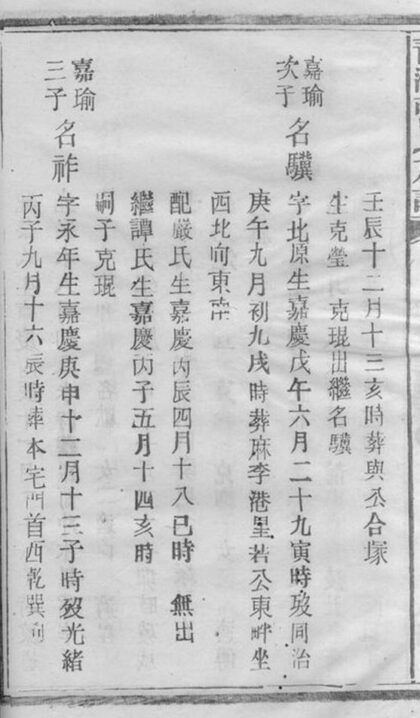 壬辰十二月十三亥時葬與公合塚
生克瑩 克琨出繼名驥
嘉瑜次子名驥字北原生嘉慶戊午六月二十九寅時歿同治
庚午九月初九戌時葬麻李港呈若公東畔坐
西北向東南
配嚴氏生嘉慶丙辰四月十八巳時 無出
繼譚氏生嘉慶丙子五月十四亥時
嗣子克琨
嘉瑜三子名祚字永年生嘉慶庚申十二月十三子時歿光緒
丙子九月十六辰時葬本宅門首西乾巽向